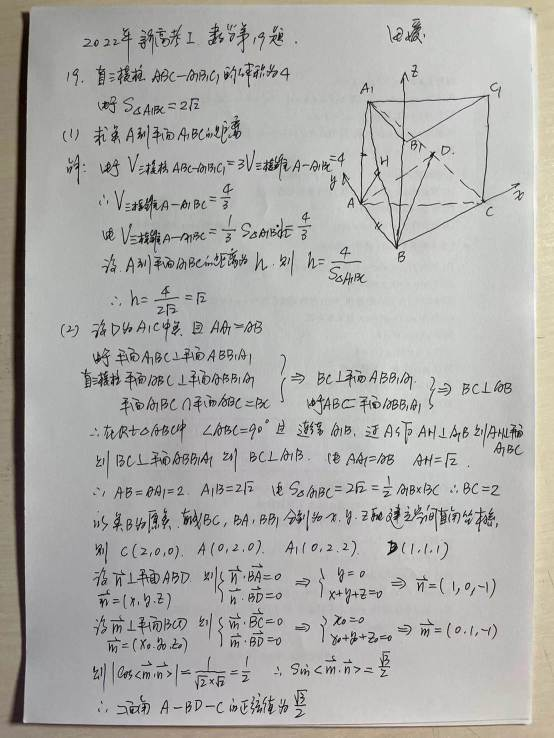 2022年 新高考I 数学第19题.
19. 直三棱柱 ABC-A₁B₁C₁ 的体积为4
S△A₁BC=2√2
(1) 求点A到平面A₁BC的距离
解: 由于 V三棱柱 ABC-A₁B₁C₁=3V三棱锥 A-A₁BC=4
∴ V三棱锥A-A₁BC=4/3
由 V三棱锥A-A₁BC=1/3 S△A₁BC·h=4/3
设 A到平面A₁BC的距离为 h. 则 h=4/S△A₁BC
∴ h=4/2√2=√2
(2) 设D为A₁C中点 且 AA₁=AB
由于 平面A₁BC⊥平面ABB₁A₁
直三棱柱 平面ABC⊥平面ABB₁A₁
平面A₁BC∩平面ABC=BC
⇒ BC⊥平面ABB₁A₁.
AB⊂平面ABB₁A₁
⇒ BC⊥AB
∴在Rt△ABC中 ∠ABC=90° 连接A₁B. 过A作 AH⊥A₁B 则AH⊥平面A₁BC
则 BC⊥平面ABB₁A₁ 则 BC⊥A₁B. 由 AA₁=AB AH=√2.
∴ AB=AA₁=2. A₁B=2√2 由 S△A₁BC=2√2=1/2 A₁B×BC ∴BC=2
以点B为原点. BC, BA, BB₁ 分别为 x. y. z轴建立空间直角坐标系,
则 C(2,0,0). A(0,2,0). A₁(0,2,2). D(1,1,1)
设n⊥平面ABD 则 {n·BA=0 n·BD=0 ⇒ {y=0 x+y+z=0 ⇒ n=(1,0,-1)
n=(x,y,z)
设m⊥平面BCD 则 {m·BC=0 m·BD=0 ⇒ {x₀=0 x₀+y₀+z₀=0 ⇒ m=(0,1,-1)
m=(x₀,y₀,z₀)
则 |cos<m·n>|=1/√2×√2=1/2 ∴ sin<m·n>=√3/2
∴ 二面角 A-BD-C的正弦值为√3/2
z
A₁
C₁
B₁
D.
H
y
A
C
x
B